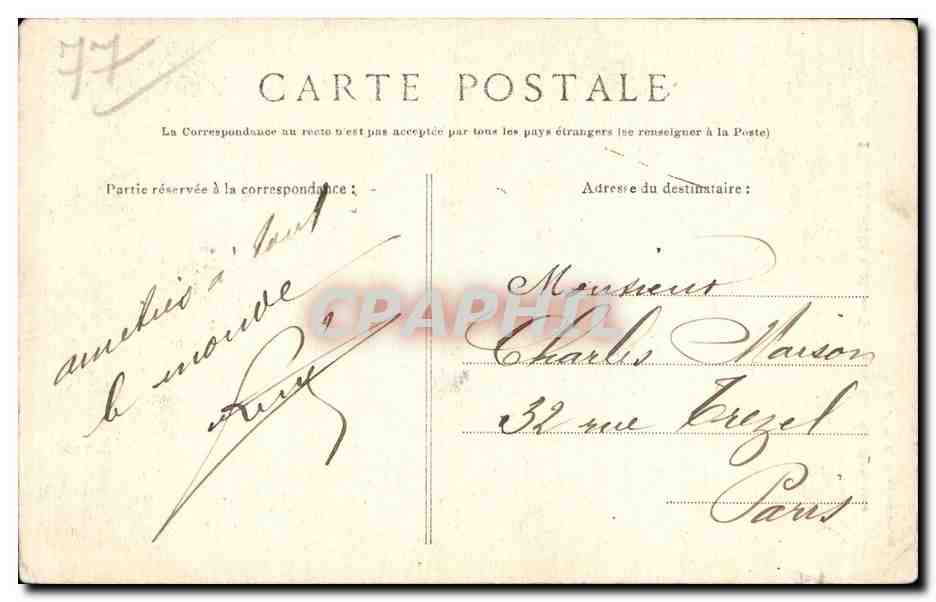 77
CARTE POSTALE
La Correspondance au recto n'est pas acceptée par tous les pays étrangers (se renseigner à la Poste)
Partie réservée à la correspondance :
amitiés à tout
le monde
Adresse du destinataire :
Monsieur
Charles Maison
32 rue Trezel
Paris
CPAPHIL